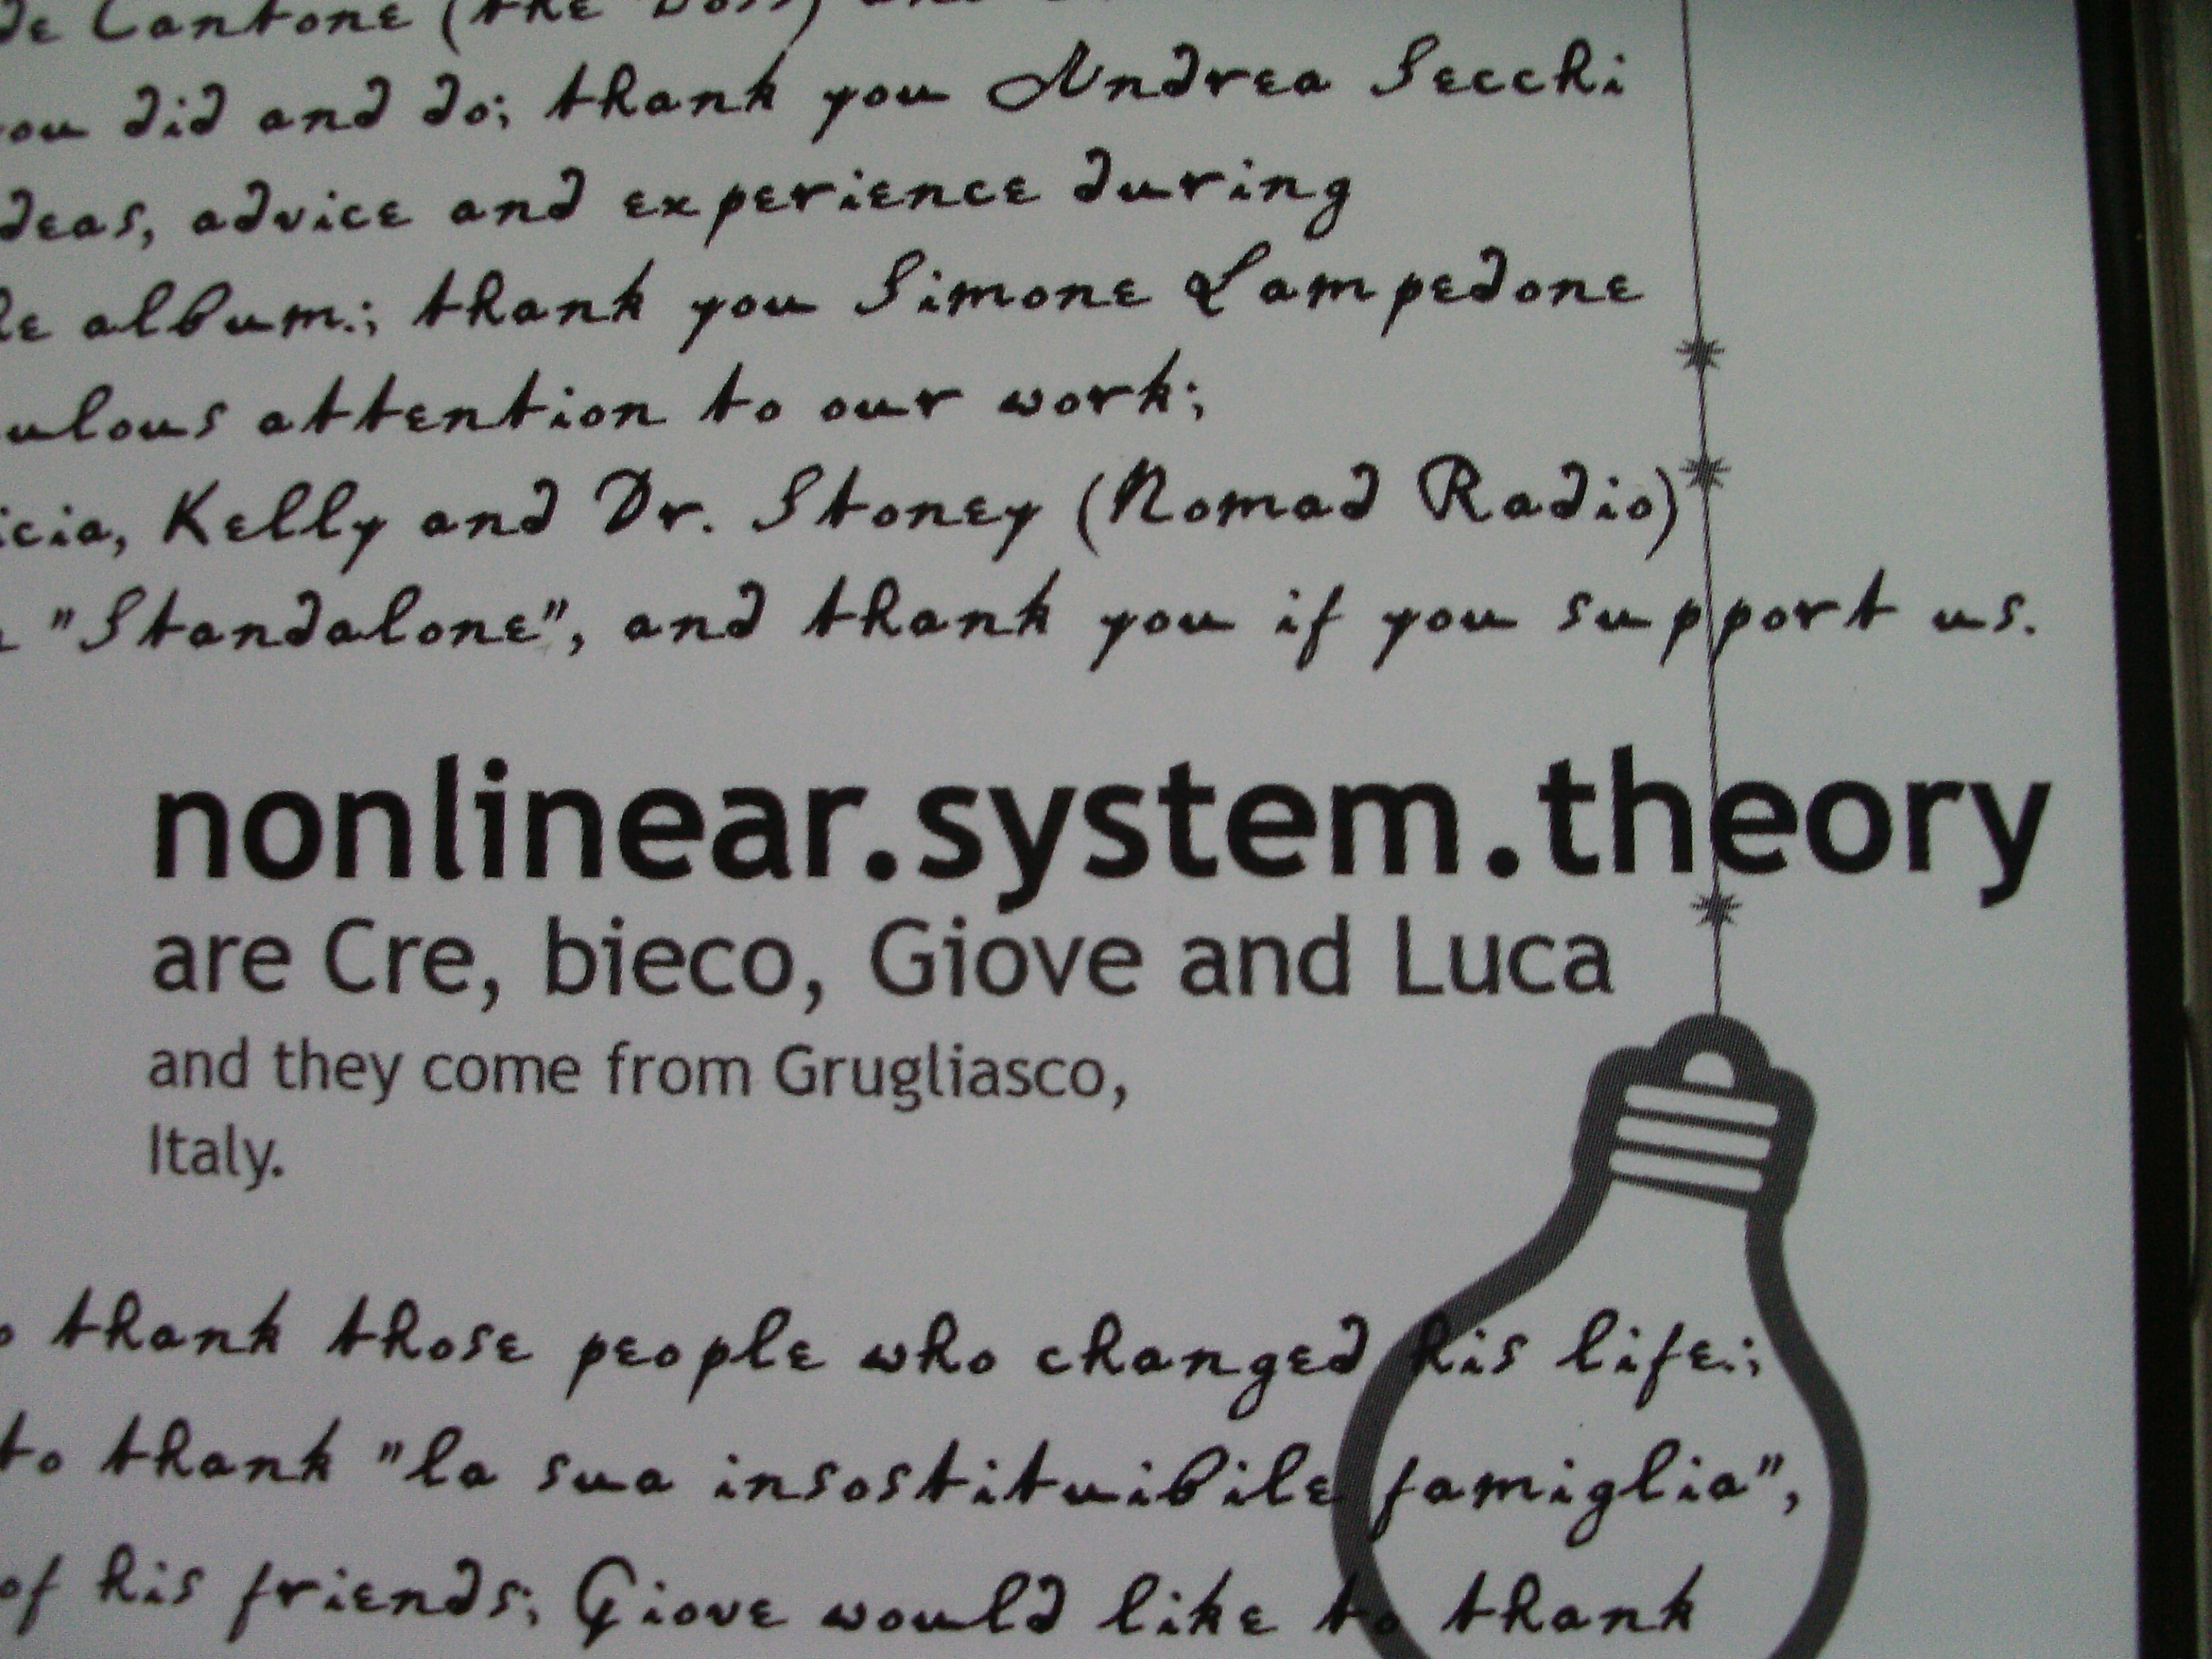 de Cantone (the Boss)
ou did and do; thank you Andrea Secchi
deas, advice and experience during
le album.; thank you Simone Lampedone
ulous attention to our work;
icia, Kelly and Dr. Stoney (Nomad Radio)
"Standalone", and thank you if you support us.
nonlinear.system.theory
are Cre, bieco, Giove and Luca
and they come from Grugliasco,
Italy.
o thank those people who changed his life.;
to thank "la sua insostituibile famiglia",
of his friends; Giove would like to thank